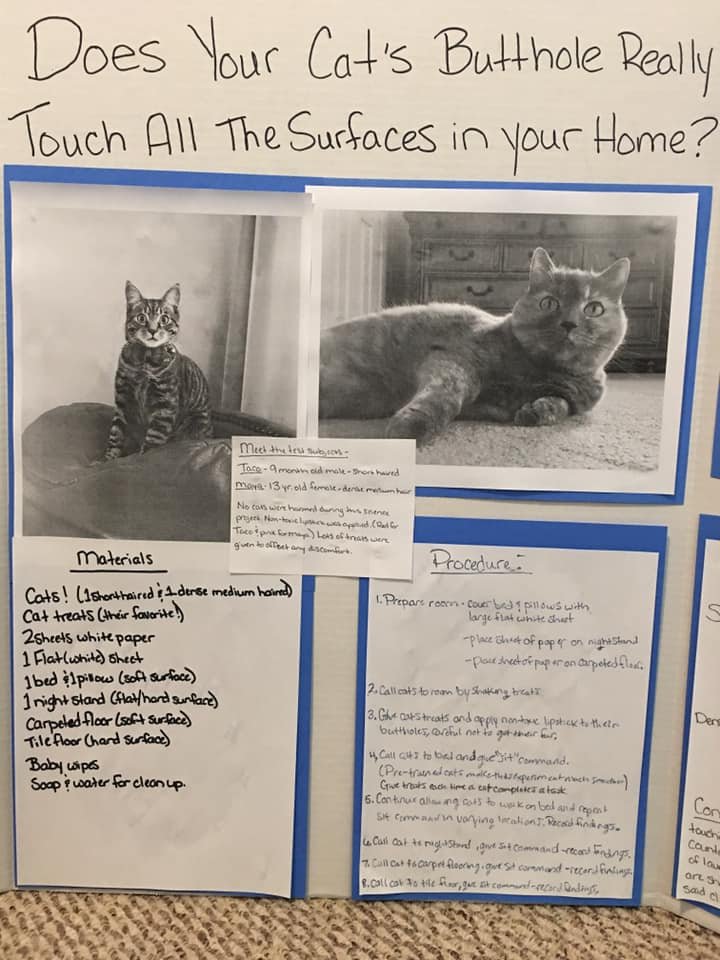 Does Your Cat's Butthole Really
Touch All The Surfaces in your Home?
Meet the test subjects -
Taco - 9 month old male - short haired
Maya - 13 yr. old female - dense medium hair
No cats were harmed during this science
project. Non-toxic lipstick was applied. (Red for
Taco & pink for Maya) Lots of treats were
given to offset any discomfort.
Materials
Cats! (1 shorthaired & 1 dense medium haired)
Cat treats (their favorite!)
2 sheets white paper
1 Flat (white) sheet
1 bed & 1 pillow (soft surface)
1 night stand (flat/hard surface)
Carpeted floor (soft surface)
Tile floor (hard surface)
Baby wipes
Soap & water for clean up.
Procedure:
1. Prepare room - cover bed & pillows with
large flat white sheet
- place sheet of paper on nightstand
- place sheet of paper on carpeted floor.
2. Call cats to room by shaking treats
3. Give cats treats and apply non-toxic lipstick to their
buttholes, careful not to get their fur.
4. Call cats to bed and give "Sit" command.
(Pre-trained cats make this experiment much smoother)
Give treats each time a cat completes a task
5. Continue allowing cats to walk on bed and repeat
sit command in varying locations. Record findings.
6. Call cat to nightstand, give sit command - record findings.
7. Call cat to carpet flooring, give sit command - record findings.
8. Call cat to tile floor, give sit command - record findings.
S
Den
Con
touch
Count
of lou
are sh
said c